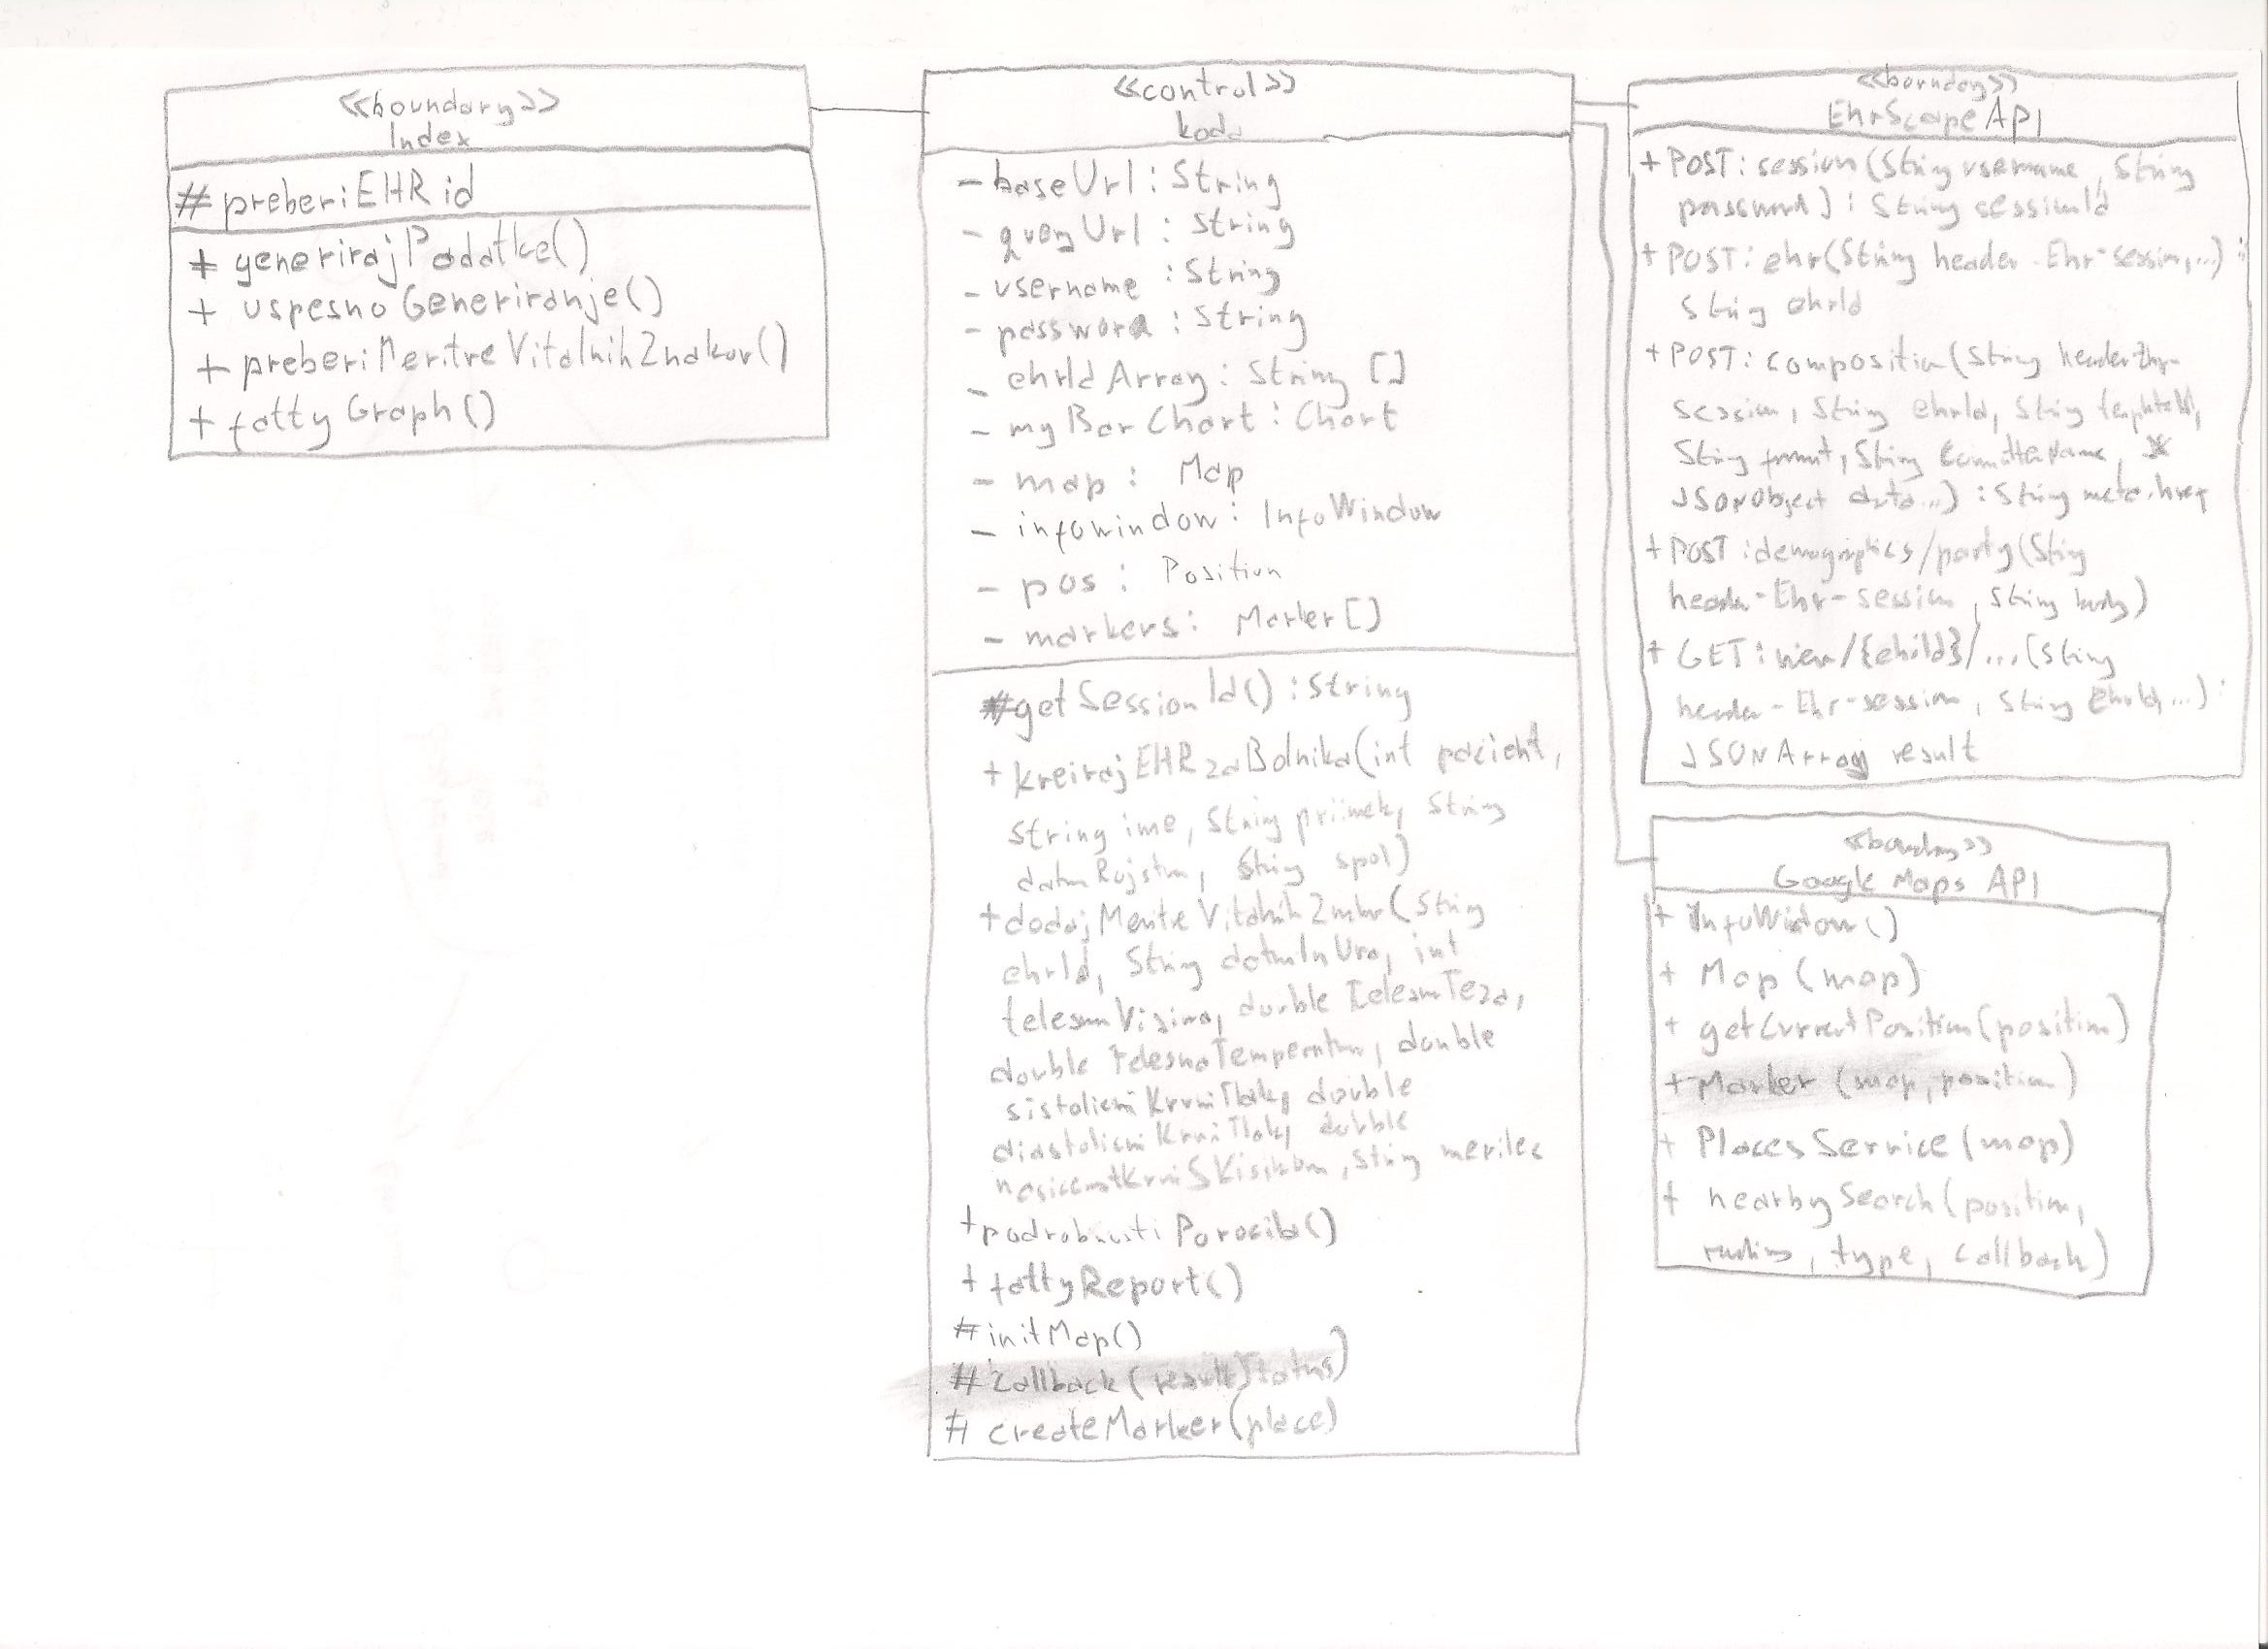 <<boundary>>
Index
# preberiEHRid
+ generirajPodatke()
+ uspesnoGeneriranje()
+ preberiMeritveVitalnihZnakov()
+ fattyGraph()
<<control>>
koda
- baseUrl : String
- queryUrl : String
- username : String
- password : String
- ehrIdArray : String []
- myBarChart : Chart
- map : Map
- infowindow : InfoWindow
- pos : Position
- markers : Marker[]
#getSessionId() : String
+ kreirajEHRzaBolnika(int pacient,
String ime, String priimek, String
datumRojstva, String spol)
+dodajMeritveVitalnihZnakov(String
ehrId, String datumInUra, int
telesnaVisina, double telesnaTeza,
double telesnaTemperatura, double
sistolicniKrvniTlak, double
diastolicniKrvniTlak, double
nasicenostKrviSKisikom, String merilec
+podrobnostiPorocila()
+ fattyReport()
# initMap()
# callback(result, status)
# createMarker(place)
<<boundary>>
EhrScape API
+ POST: session(String username, String
password) : String sessionId
+ POST: ehr(String header-Ehr-session,...) :
String ehrId
+ POST: composition(String header-Ehr-
session, String ehrId, String templateId,
String format, String committerName,
JSONObject data...) : String meta.href
+ POST: demographics/party(String
header-Ehr-session, String body)
+ GET: view/{ehrId}/...(String
header-Ehr-session, String EhrId,...) :
JSONArray result
<<boundary>>
Google Maps API
+ InfoWindow()
+ Map(map)
+ getCurrentPosition(position)
+ Marker (map, position)
+ PlacesService(map)
+ nearbySearch(position,
radius, type, callback)